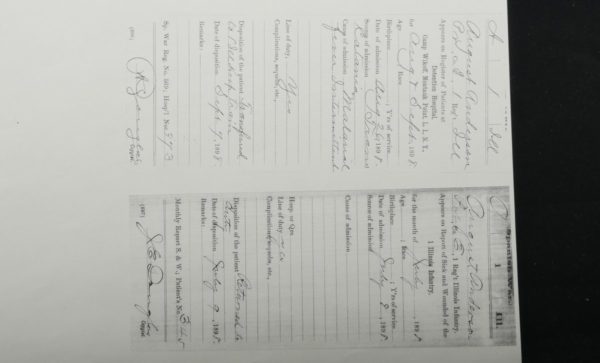 1 Ill
August Anderson
1 Reg't Ill
Appears on Register of Patients at
Detention Hospital,
Camp Wikoff, Montauk Point, L. I., N. Y.,
for Aug & Sept, 1898
Age ; Race
Birthplace ; Y'rs of service
Date of admission Aug 26, 1898.
Source of admission
Cause of admission Malarial
fever Intermittent
Line of duty, Yes
Complications, sequelæ, etc.,
Disposition of the patient Transferred
to
Date of disposition Sept 9, 1898
Remarks:
Sp. War Reg. No. ; Hosp'l No. 973
Copyist.
Spanish War.
1 Ill.
August Anderson
Co. E, 1 Reg't Illinois Infantry.
Appears on Report of Sick and Wounded of the
1 Illinois Infantry,
for the month of July, 1898
Age ; Race
Birthplace ; Y'rs of service
Date of admission July 8, 1898
Source of admission
Cause of admission
Hosp. or Qrs
Line of duty
Complications, sequelæ, etc.,
Disposition of the patient Returned to
duty
Date of disposition July 9, 1898
Remarks:
Monthly Report S. & W.; Patient's No. 345
Copyist.